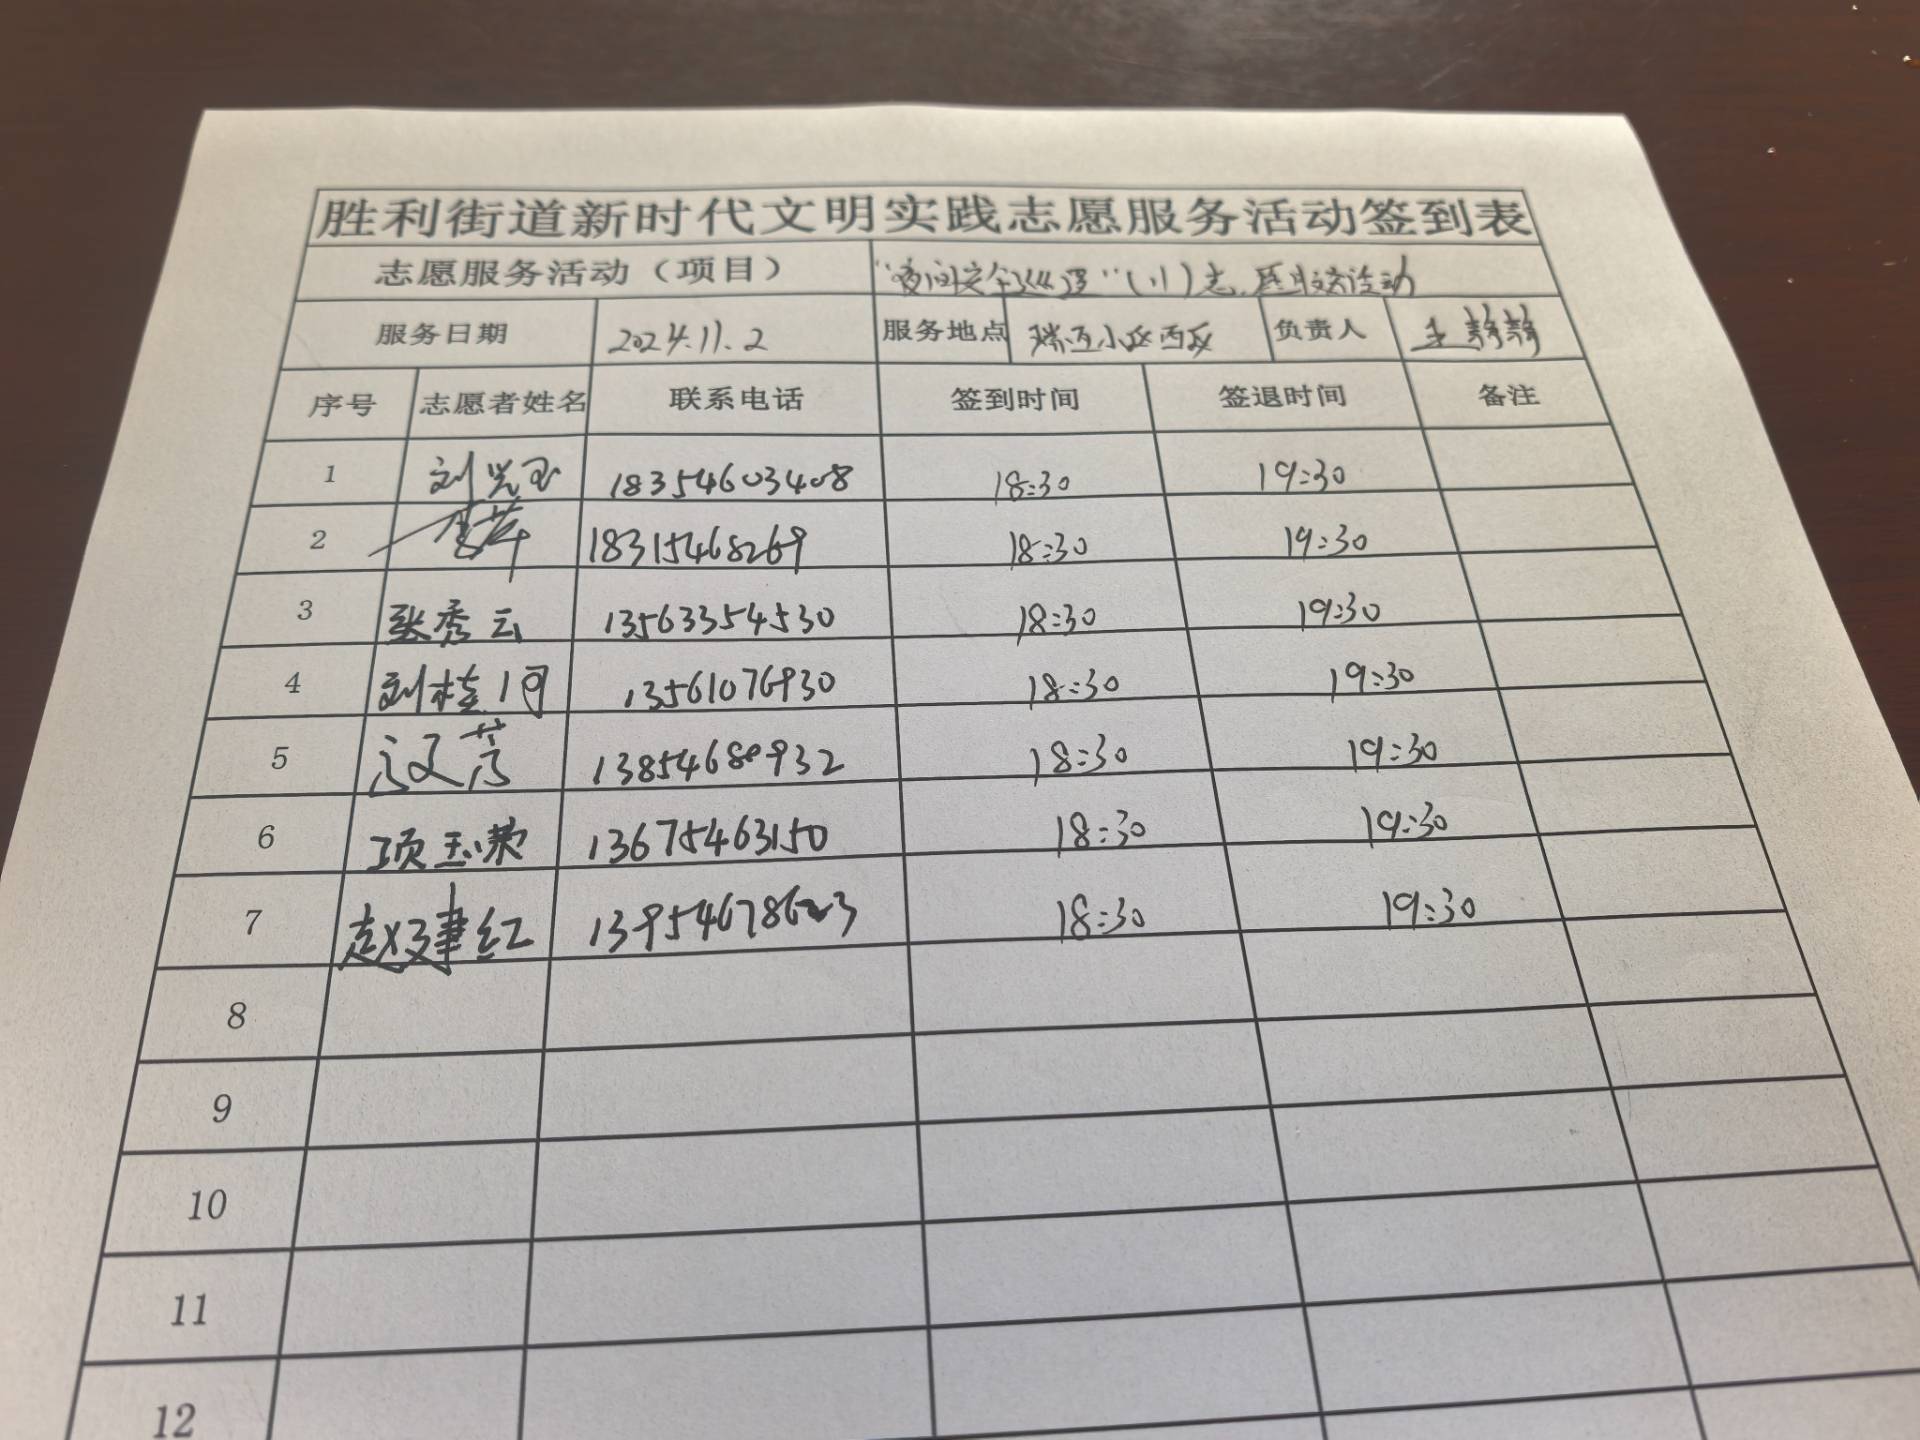 胜利街道新时代文明实践志愿服务活动签到表
志愿服务活动（项目） "夜间安全巡逻"(川)志愿服务活动
服务日期 2024.11.2 服务地点 小区西区 负责人 王静静
序号 志愿者姓名 联系电话 签到时间 签退时间 备注
1 刘兴玉 18354603408 18:30 19:30
2 18315468269 18:30 19:30
3 张秀云 13563354530 18:30 19:30
4 刘桂 13561076930 18:30 19:30
5 18:30 19:30
6 项玉荣 13675463150 18:30 19:30
7 赵建红 13954678623 18:30 19:30
8
9
10
11
12